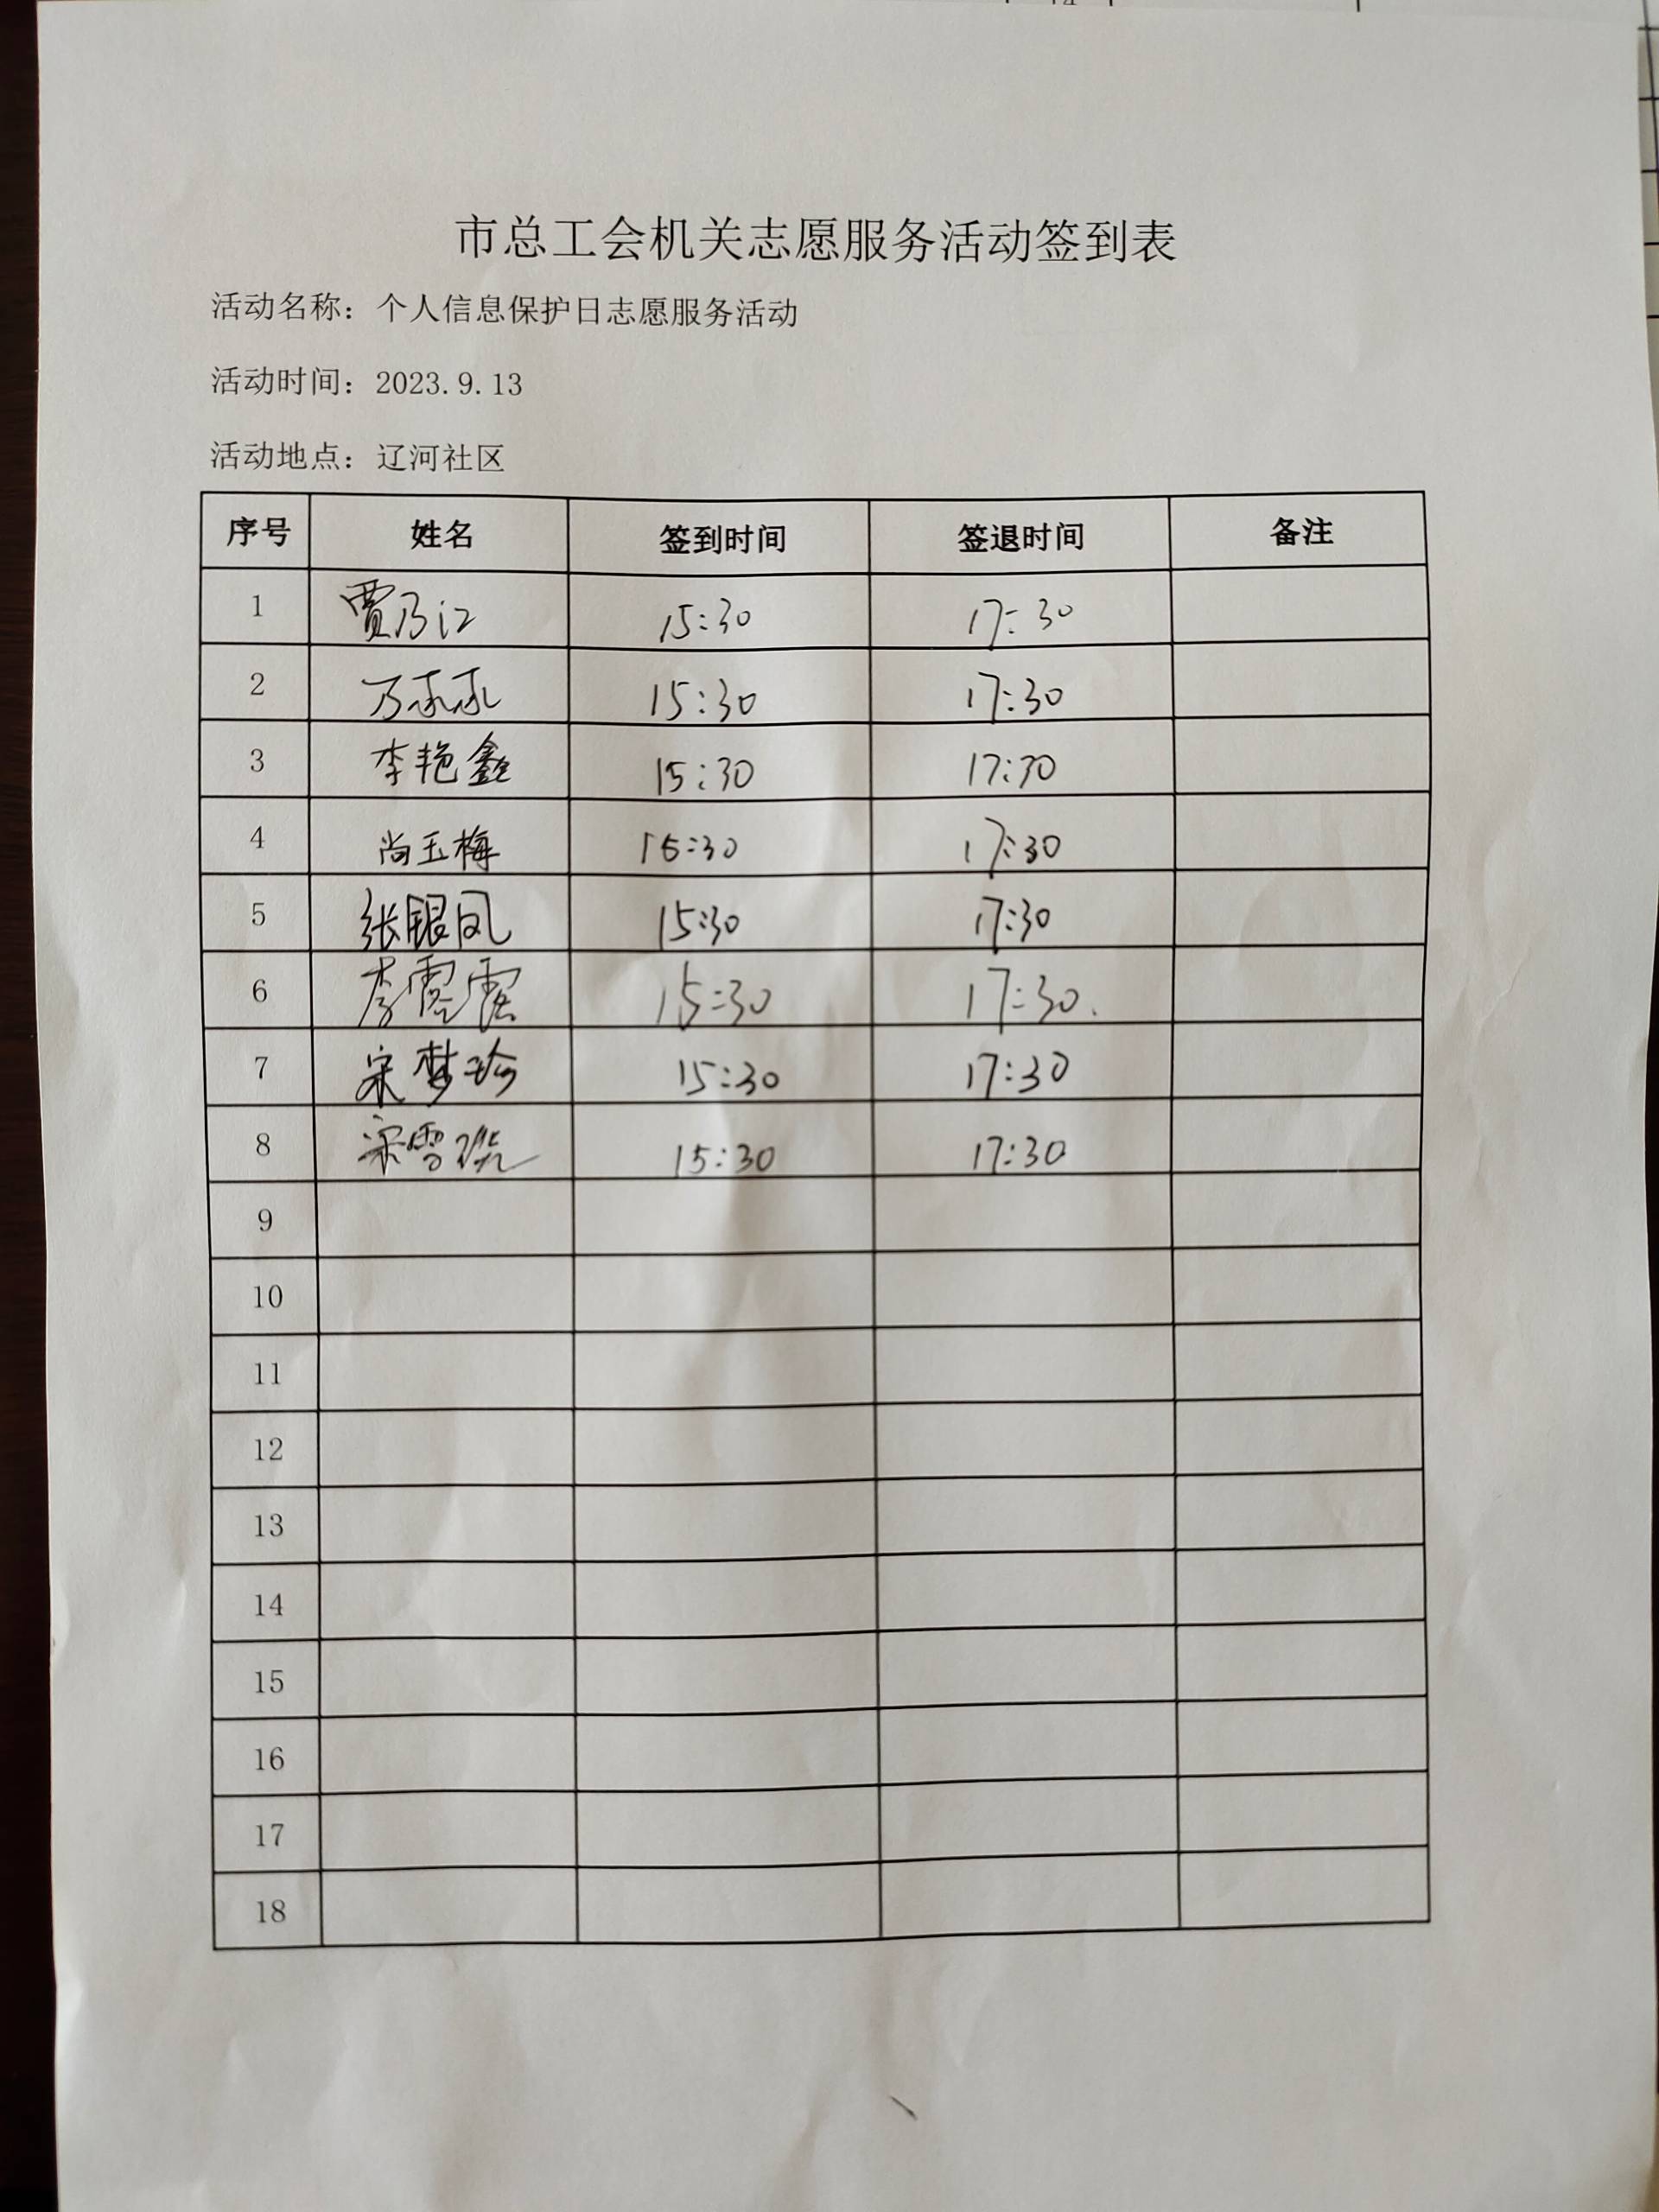 市总工会机关志愿服务活动签到表
活动名称：个人信息保护日志愿服务活动
活动时间：2023.9.13
活动地点：辽河社区
序号 姓名 签到时间 签退时间 备注
1 贾乃江 15:30 17:30
2 15:30 17:30
3 李艳鑫 15:30 17:30
4 尚玉梅 15:30 17:30
5 张银凤 15:30 17:30
6 李霞霞 15:30 17:30
7 宋梦珍 15:30 17:30
8 15:30 17:30
9
10
11
12
13
14
15
16
17
18